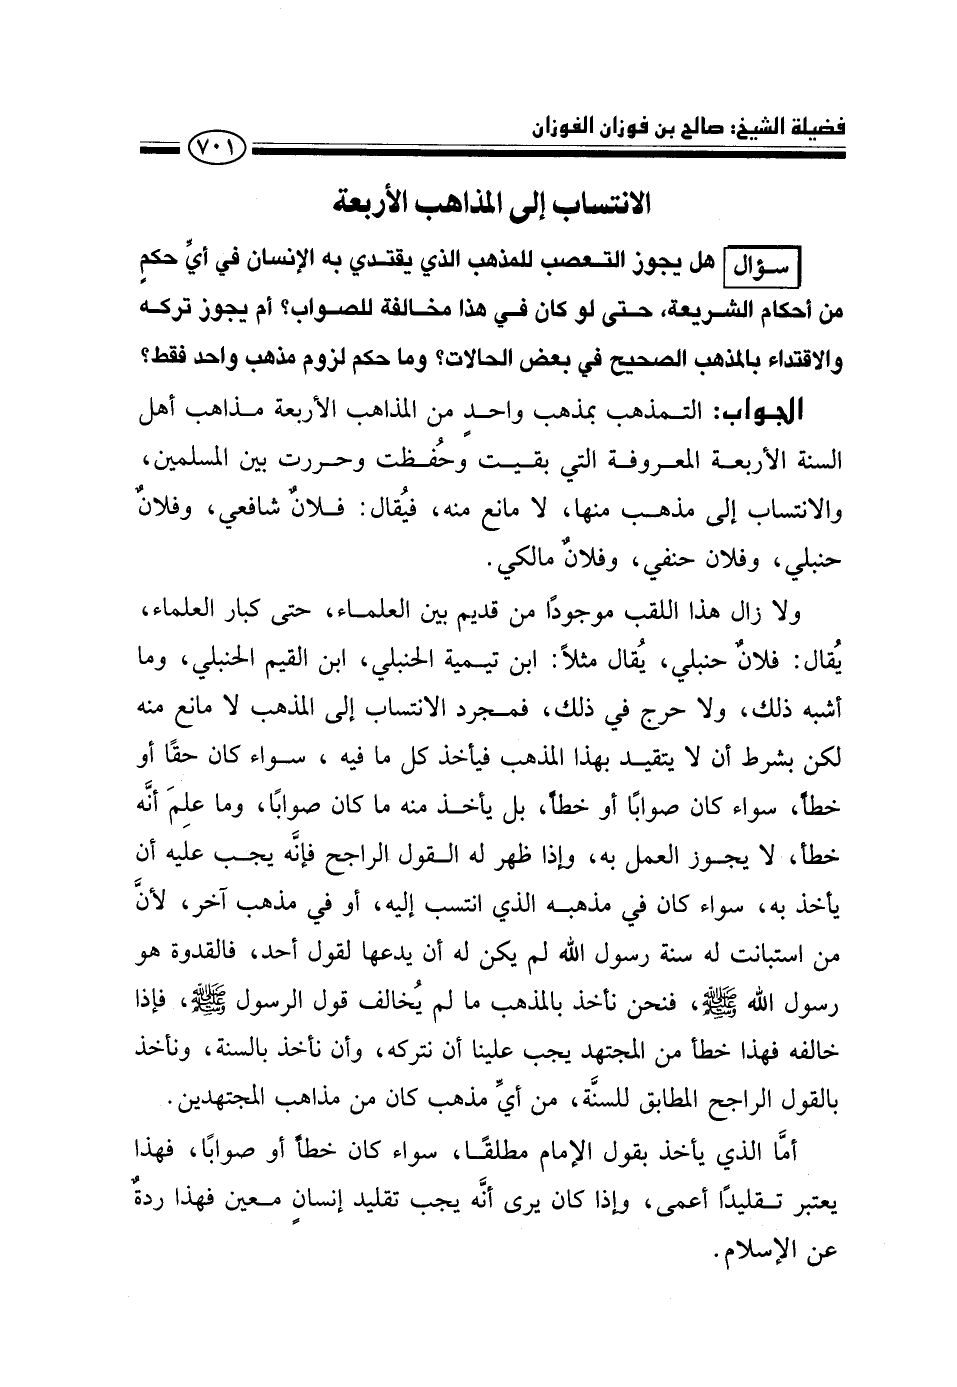 فضيلة الشيخ: صالح بن فوزان الفوزان
٧٠١
الانتساب إلى المذاهب الأربعة
سؤال هل يجوز التعصب للمذهب الذي يقتدي به الإنسان في أيِّ حكمٍ
من أحكام الشريعة، حتى لو كان في هذا مخالفة للصواب؟ أم يجوز تركه
والاقتداء بالمذهب الصحيح في بعض الحالات؟ وما حكم لزوم مذهب واحد فقط؟
الجواب: التمذهب بمذهب واحدٍ من المذاهب الأربعة مذاهب أهل
السنة الأربعة المعروفة التي بقيت وحُفظت وحررت بين المسلمين،
والانتساب إلى مذهب منها، لا مانع منه، فيُقال: فلانٌ شافعي، وفلانٌ
حنبلي، وفلان حنفي، وفلانٌ مالكي.
ولا زال هذا اللقب موجودًا من قديم بين العلماء، حتى كبار العلماء،
يُقال: فلانٌ حنبلي، يُقال مثلاً: ابن تيمية الحنبلي، ابن القيم الحنبلي، وما
أشبه ذلك، ولا حرج في ذلك، فمجرد الانتساب إلى المذهب لا مانع منه
لكن بشرط أن لا يتقيد بهذا المذهب فيأخذ كل ما فيه ، سواء كان حقًا أو
خطأ، سواء كان صوابًا أو خطأ، بل يأخذ منه ما كان صوابًا، وما علِمَ أنَّه
خطأ، لا يجوز العمل به، وإذا ظهر له القول الراجح فإنَّه يجب عليه أن
يأخذ به، سواء كان في مذهبه الذي انتسب إليه، أو في مذهب آخر، لأنَّ
من استبانت له سنة رسول الله لم يكن له أن يدعها لقول أحد، فالقدوة هو
رسول الله ﷺ، فنحن نأخذ بالمذهب ما لم يُخالف قول الرسول ﷺ، فإذا
خالفه فهذا خطأ من المجتهد يجب علينا أن نتركه، وأن نأخذ بالسنة، ونأخذ
بالقول الراجح المطابق للسنَّة، من أيِّ مذهب كان من مذاهب المجتهدين.
أمَّا الذي يأخذ بقول الإمام مطلقًا، سواء كان خطأ أو صوابًا، فهذا
يعتبر تقليدًا أعمى، وإذا كان يرى أنَّه يجب تقليد إنسانٍ معين فهذا ردةٌ
عن الإسلام.